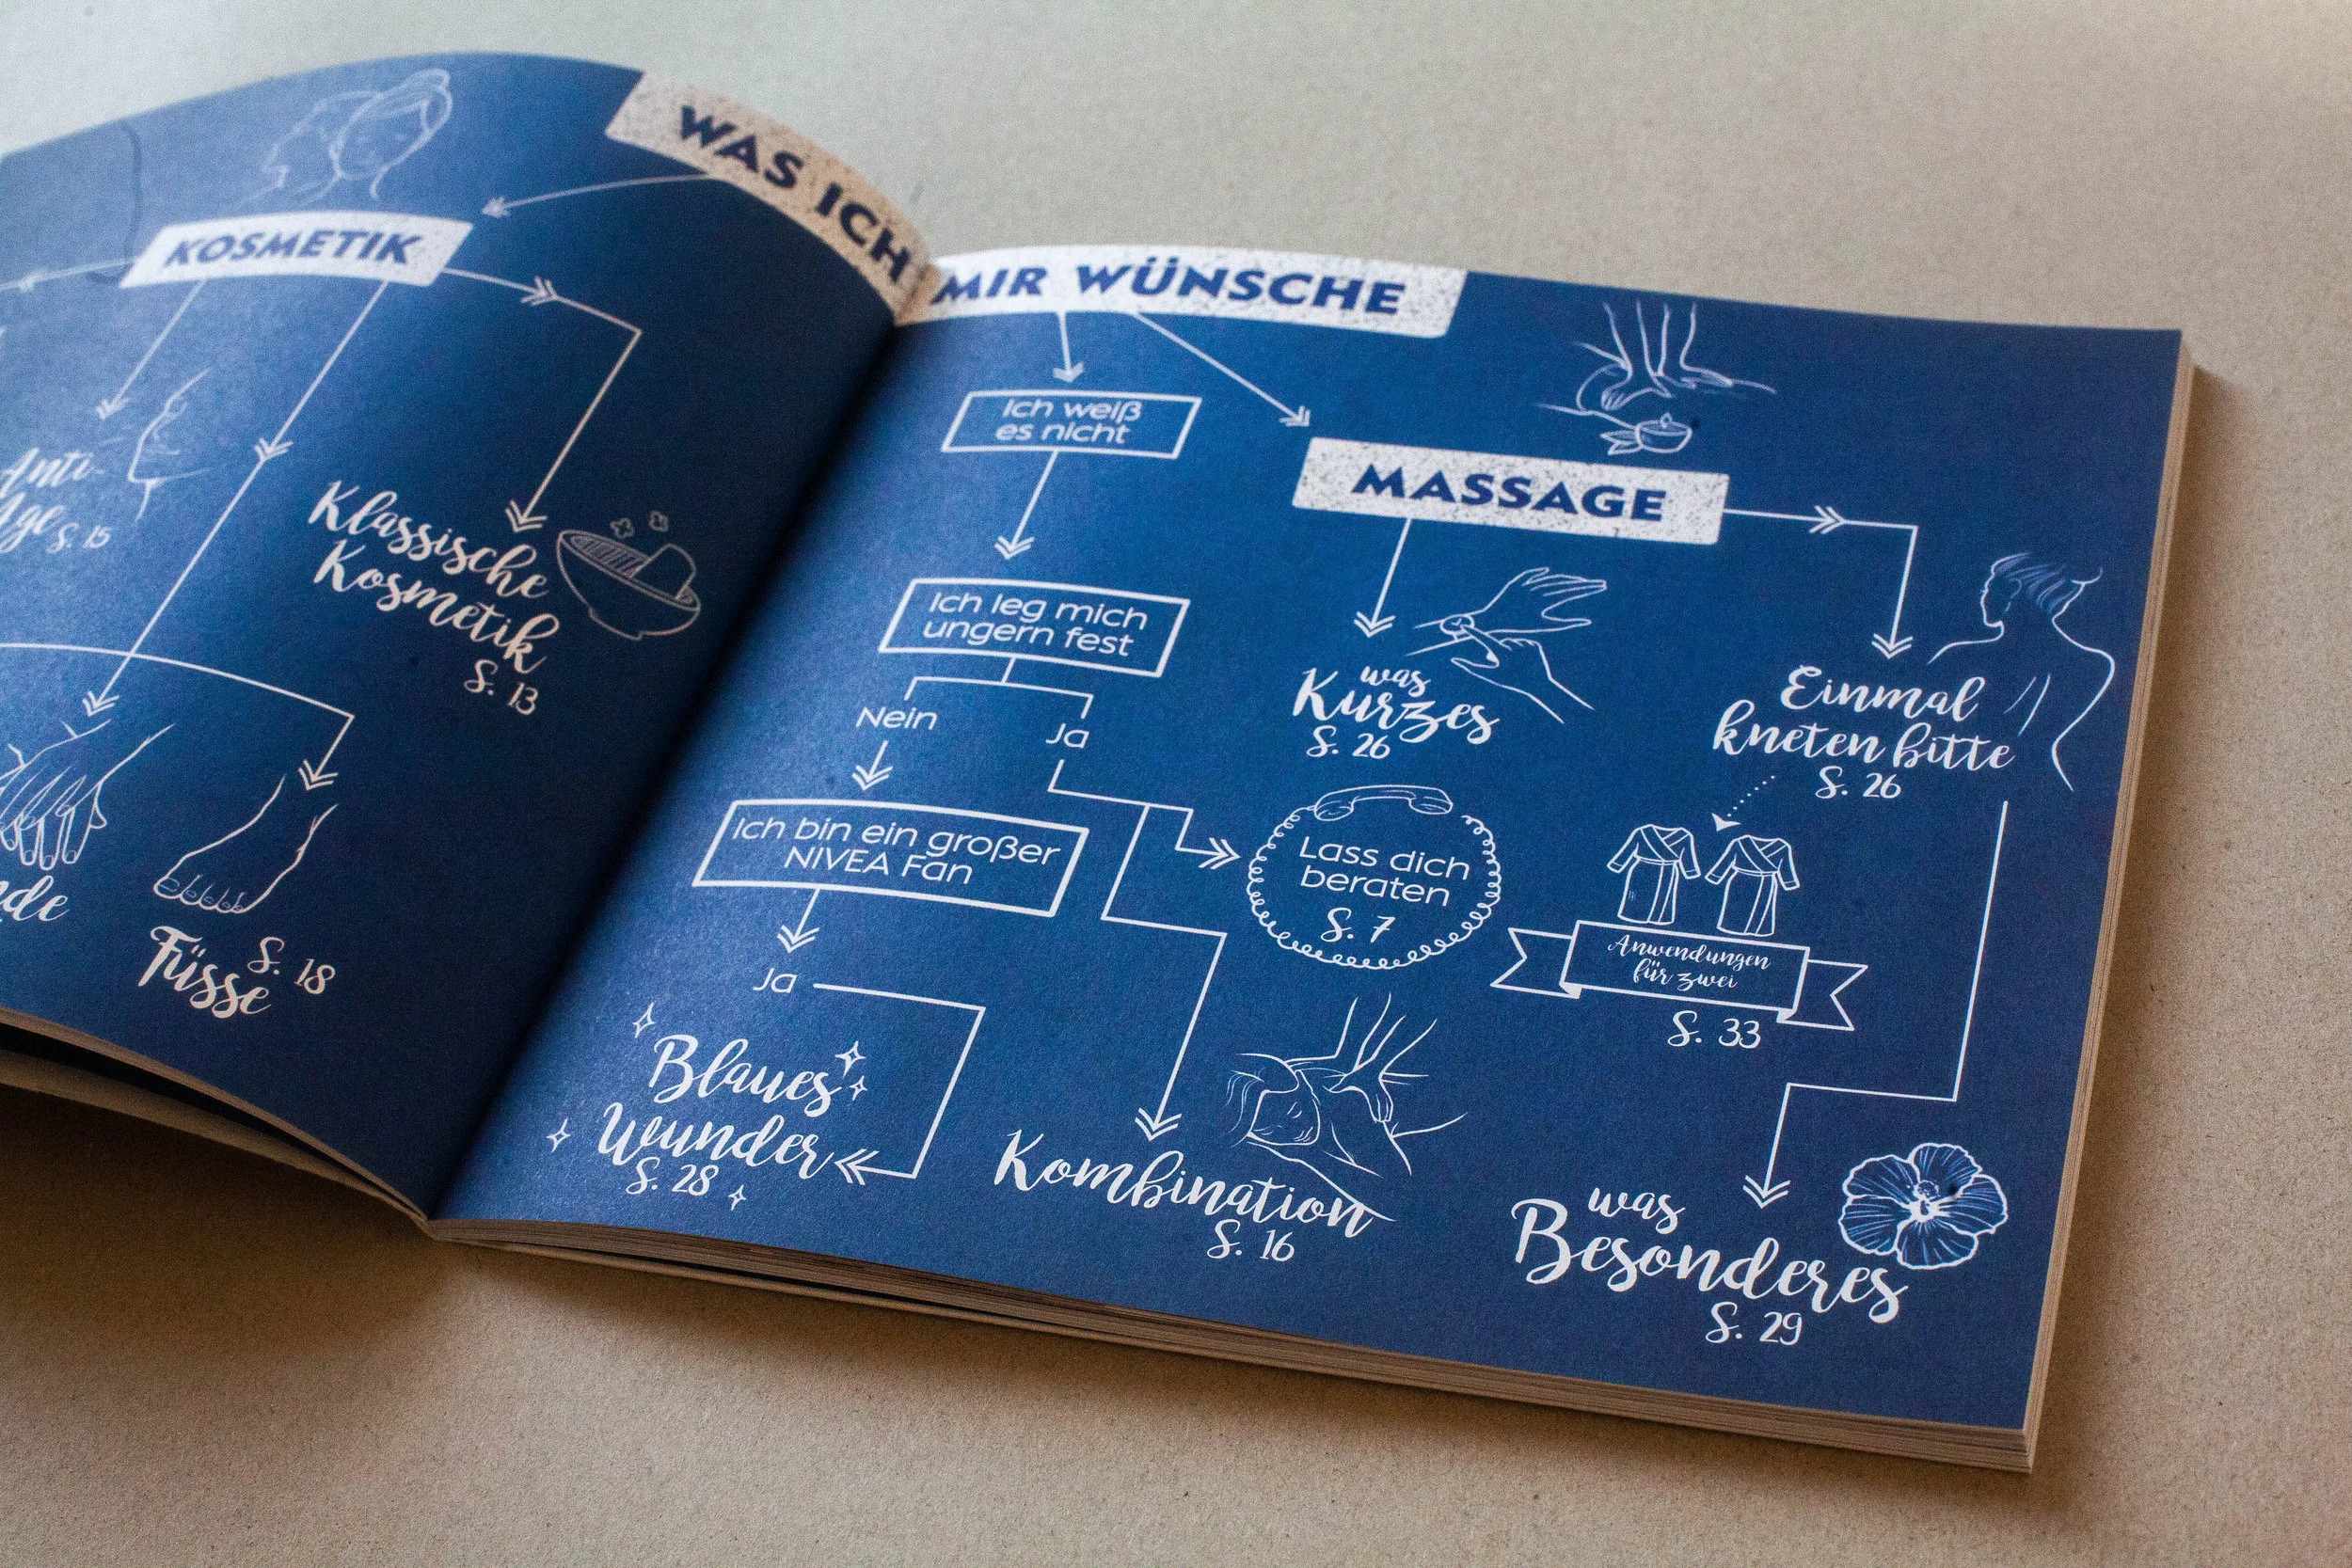 WAS ICH MIR WÜNSCHE
KOSMETIK
Anti-
Age S. 15
Klassische
Kosmetik
S. 13
Füsse
S. 18
Ich weiß
es nicht
Ich leg mich
ungern fest
Nein
Ja
Ich bin ein großer
NIVEA Fan
Ja
Blaues
Wunder
S. 28
Lass dich
beraten
S. 7
Kombination
S. 16
MASSAGE
was
Kurzes
S. 26
Einmal
kneten bitte
S. 26
Anwendungen
für zwei
S. 33
was
Besonderes
S. 29